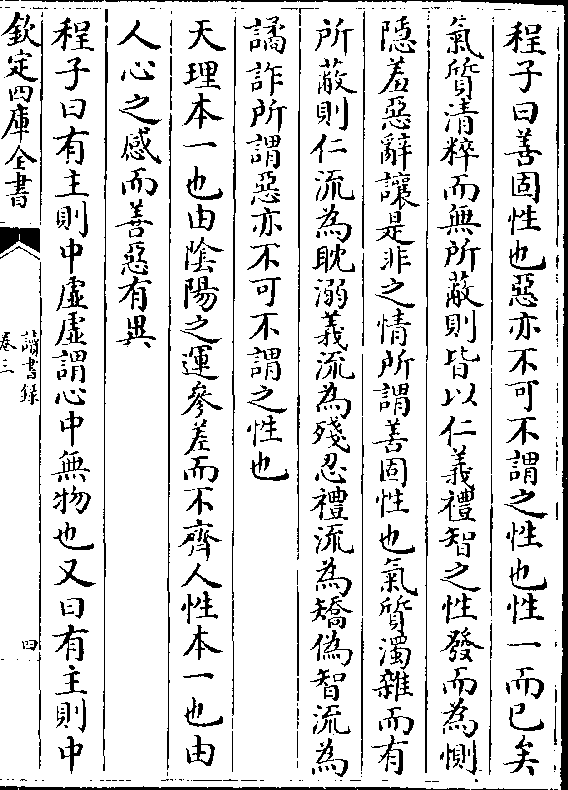 程子曰善固性也惡亦不可不謂之性也性一而已矣
氣質清粹而無所蔽則皆以仁義禮智之性發而為惻
隱羞惡辭讓是非之情所謂善固性也氣質濁雜而有
所蔽則仁流為耽溺義流為殘忍禮流為矯偽智流為
譎詐所謂惡亦不可不謂之性也
天理本一也由陰陽之運參差而不齊人性本一也由
人心之感而善惡有異
程子曰有主則中虛虛謂心中無物也又曰有主則中
欽定四庫全書
讀書錄
卷三
四